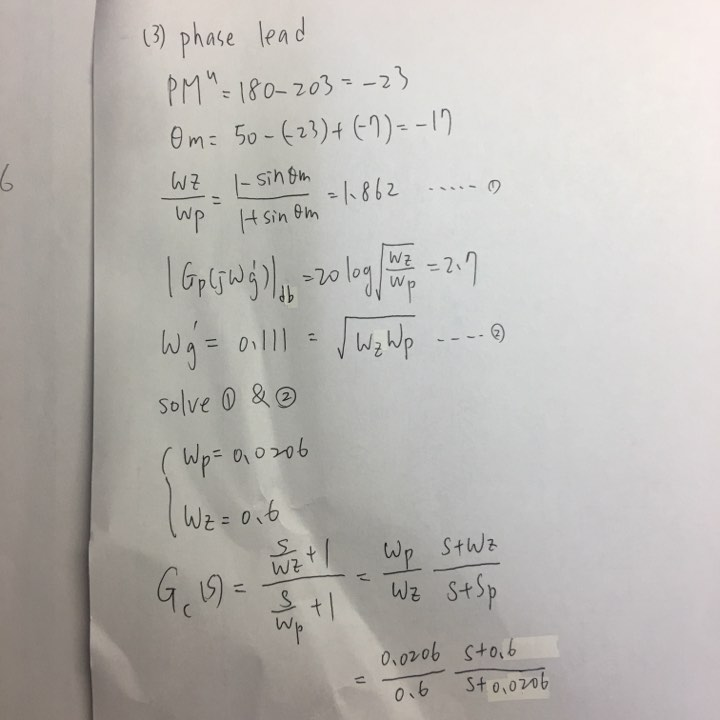 (3) phase lead
PM" = 180 - 203 = -23
θm = 50 - (-23) + (-7) = -17
Wz/Wp = (1 - sinθm)/(1 + sinθm) = 1.862 ...... ①
|Gp(jWg')|db = 20 log √(Wz/Wp) = 2.7
Wg' = 0.111 = √(WzWp) ---- ②
solve ① & ②
{ Wp = 0.0206
Wz = 0.6
Gc(s) = (s/Wz + 1)/(s/Wp + 1) = Wp/Wz (S+Wz)/(S+Sp)
= 0.0206/0.6 (S+0.6)/(S+0.0206)
6